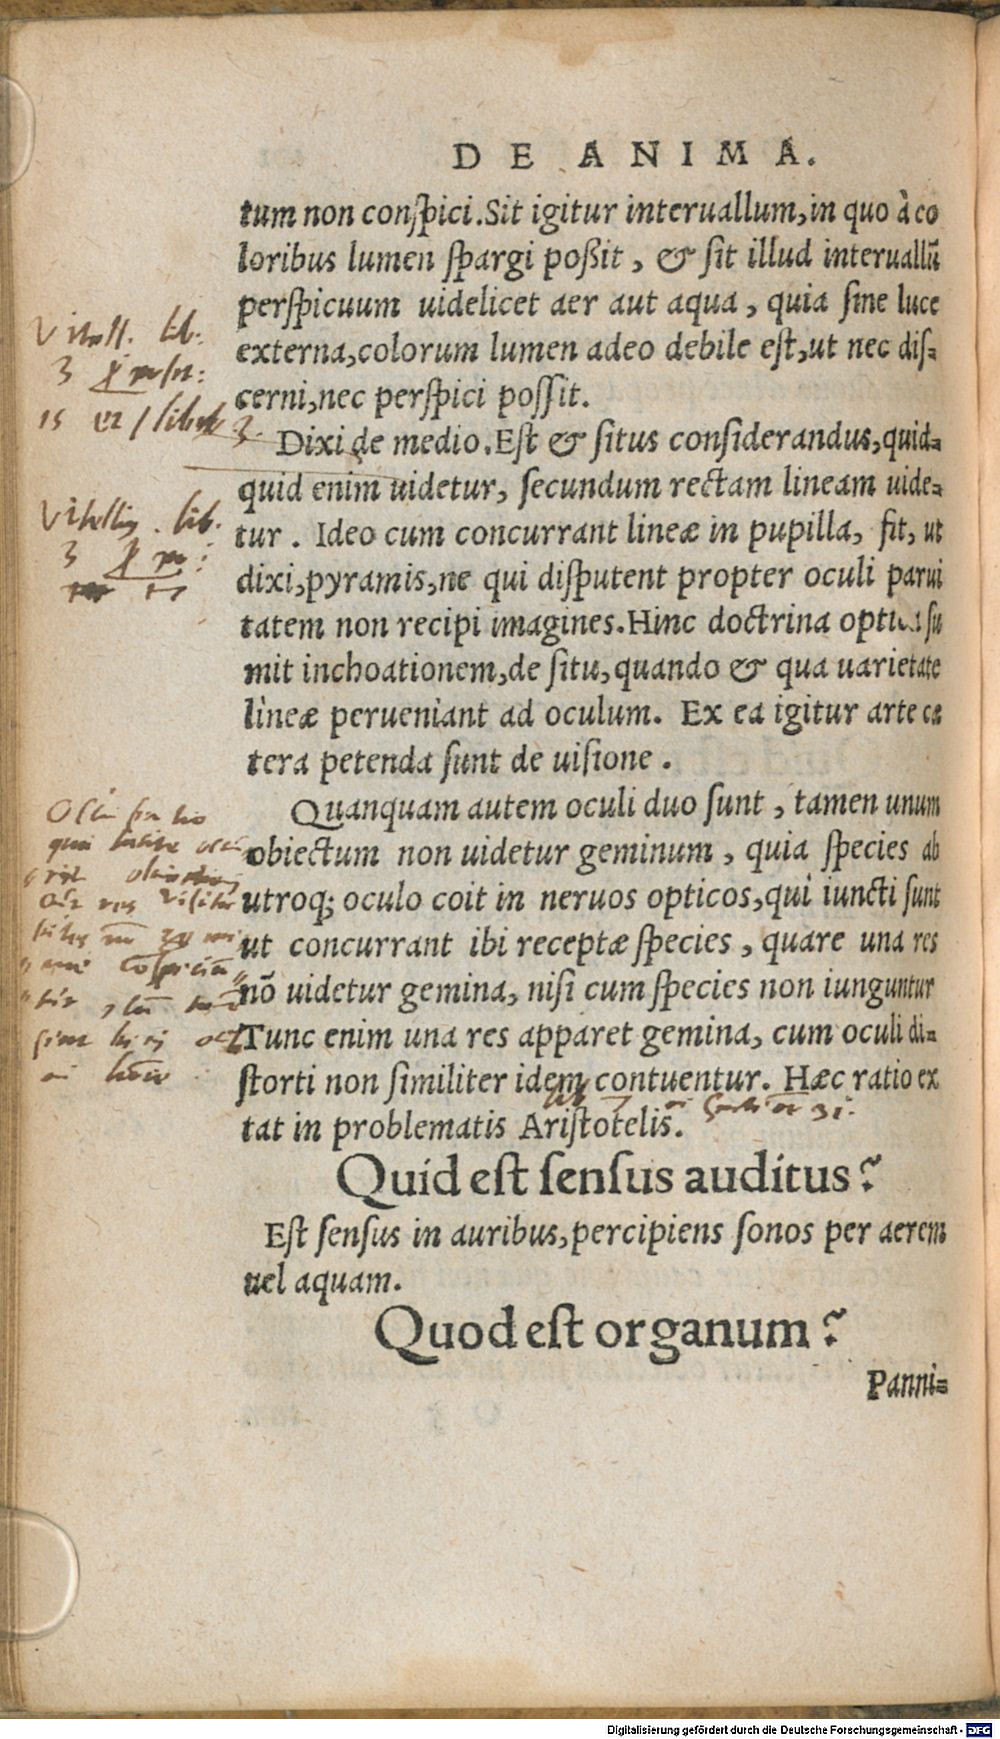 DE ANIMA.
tum non conſpici. Sit igitur interuallum, in quo à co
loribus lumen ſpargi poßit, & ſit illud interuallū
perſpicuum uidelicet aer aut aqua, quia ſine luce
externa, colorum lumen adeo debile eſt, ut nec diſ-
cerni, nec perſpici poſſit.
Dixi de medio. Eſt & ſitus conſiderandus, quid-
quid enim uidetur, ſecundum rectam lineam uide-
tur. Ideo cum concurrant lineæ in pupilla, fit, ut
dixi, pyramis, ne qui diſputent propter oculi parui
tatem non recipi imagines. Hinc doctrina optica ſu
mit inchoationem, de ſitu, quando & qua uarietate
lineæ perueniant ad oculum. Ex ea igitur arte cæ
tera petenda ſunt de uiſione.
Quanquam autem oculi duo ſunt, tamen unum
obiectum non uidetur geminum, quia ſpecies ab
utroq; oculo coit in neruos opticos, qui iuncti ſunt
ut concurrant ibi receptæ ſpecies, quare una res
nō uidetur gemina, niſi cum ſpecies non iunguntur
Tunc enim una res apparet gemina, cum oculi di-
ſtorti non ſimiliter idem contuentur. Hæc ratio ex
tat in problematis Ariſtotelis.
Quid eſt ſenſus auditus?
Eſt ſenſus in auribus, percipiens ſonos per aerem
uel aquam.
Quod eſt organum?
Panni-
lib.
3
15
lib. 3.
lib.
3
17
31.
Digitalisierung gefördert durch die Deutsche Forschungsgemeinschaft - DFG